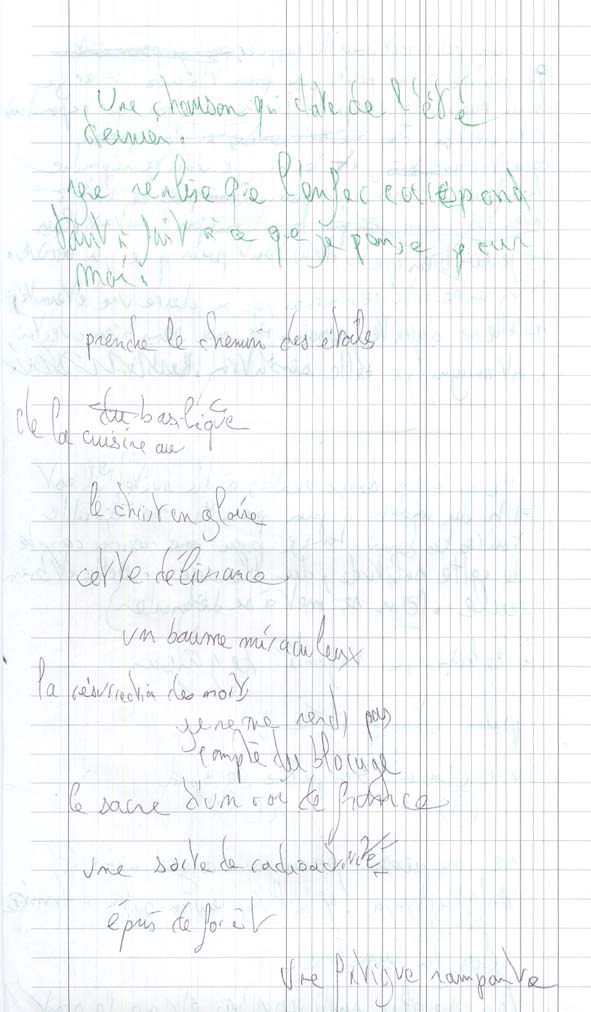 Une chanson qui date de l'été
dernier.
que l'enfer correspond
tout à fait à ce que je pense pour
moi.
prendre le chemin des étoiles
du basilique
de la cuisine au
le christ en gloire
cette délivrance
un baume miraculeux
la résurrection des morts
je ne me rends pas
compte du blocage
le sacre d'un roi de France
une sorte de radioactivité
épris de forêt
une rampante